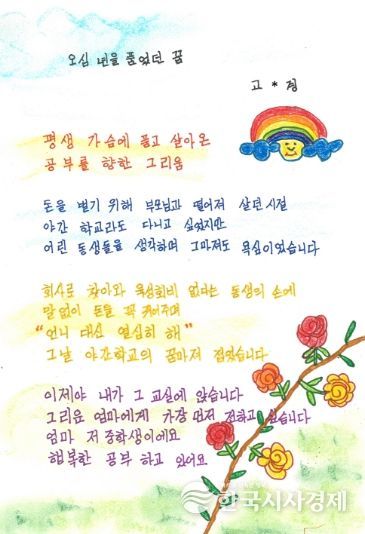 오십 년을 품었던 꿈
고 * 점
평생 가슴에 품고 살아온
공부를 향한 그리움
돈을 벌기 위해 부모님과 떨어져 살던 시절
야간 학교라도 다니고 싶었지만
어린 동생들을 생각하며 그마저도 욕심이었습니다
회사로 찾아와 육성회비 없다는 동생의 손에
말 없이 돈을 꼭 쥐어주며
"언니 대신 열심히 해"
그날 야간학교의 꿈마저 접었습니다
이제야 내가 그 교실에 앉습니다
그리운 엄마에게 가장 먼저 전하고 싶습니다
엄마 저 중학생이에요
행복한 공부 하고 있어요.
한국시사경제